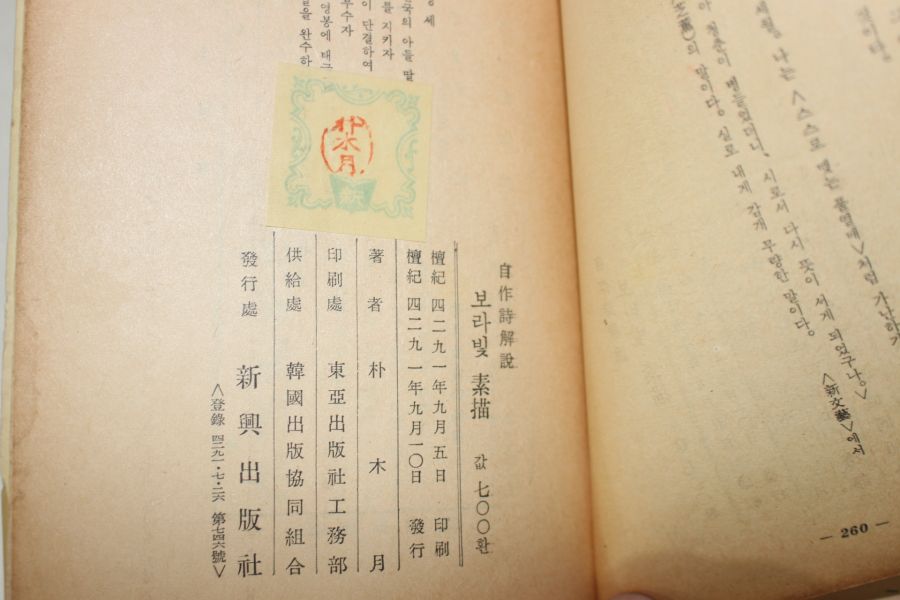 것이다.
세월, 나는 <스스로 맺는 풀열매>처럼 가난하기
야 청춘이 병들었더니, 시로서 다시 뜻이 서게 되었구나.>
<新文藝>에서
의 말이다. 실로 내게 감개 무량한 말이다.
— 260 —
세
국의 아들 딸
를 지키자
이 단결하여
무수자
영봉에 태극
을 완수하
朴木月
自作詩解說
보라빛 素描 값 七〇〇환
檀紀 四二九一年九月五日 印刷
檀紀 四二九一年九月一〇日 發行
著者 朴木月
印刷處 東亞出版社工務部
供給處 韓國出版協同組合
發行處 新興出版社
<登錄 四二九一·七·二六 第七四六號>